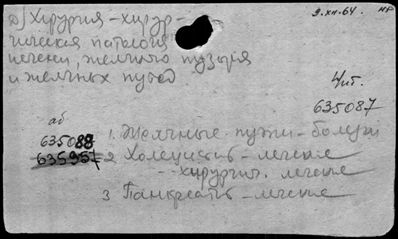 а) Хирургия - хирур-
гическая патология
печени, желчного пузыря
и желчных путей
9.XII.64. НР
Чит.
635087
аб
635088
635957
1. Желчные пути - болезни
2 Холецистит - лечение
- хирургич. лечение
3 Панкреатит - лечение